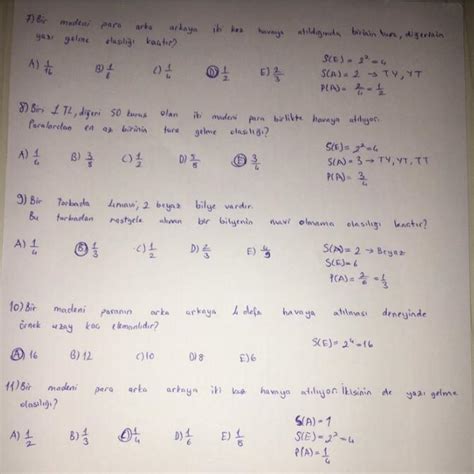 7) Bir madeni para arka arkaya iki kez havaya atıldığında birinin tura, diğerinin
yazı gelme olasılığı kaçtır?
A) 1/16 B) 1/6 C) 1/4 D) 1/2 E) 2/3
S(E) = 2² = 4
S(A) = 2 → TY, YT
P(A) = 2/4 = 1/2
8) Biri 1 TL, diğeri 50 kuruş olan iki madeni para birlikte havaya atılıyor.
Paralardan en az birinin tura gelme olasılığı?
A) 1/4 B) 3/8 C) 1/2 D) 5/8 E) 3/4
S(E) = 2² = 4
S(A) = 3 → TY, YT, TT
P(A) = 3/4
9) Bir Torbada 4 mavi, 2 beyaz bilye vardır.
Bu torbadan rastgele alınan bir bilyenin mavi olmama olasılığı kaçtır?
A) 1/4 B) 1/3 C) 1/2 D) 2/3 E) 4/9
S(A) = 2 → Beyaz
S(E) = 6
P(A) = 2/6 = 1/3
10) Bir madeni paranın arka arkaya 4 defa havaya atılması deneyinde
örnek uzay kaç elemanlıdır?
A) 16 B) 12 C) 10 D) 8 E) 6
S(E) = 2⁴ = 16
11) Bir madeni para arka arkaya iki kez havaya atılıyor. İkisinin de yazı gelme
olasılığı?
A) 1/2 B) 1/3 C) 1/4 D) 1/6 E) 1/8
S(A) = 1
S(E) = 2² = 4
P(A) = 1/4